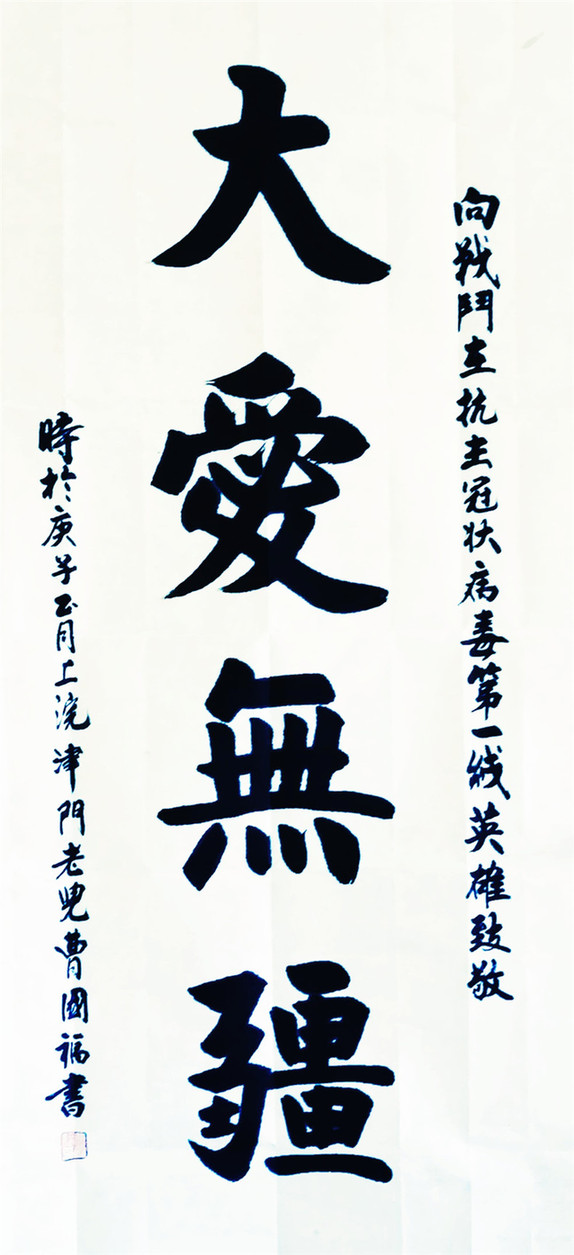 向戰鬥在抗主冠状病毒第一綫英雄致敬
大愛無疆
時於庚子正月上浣津門老兒曹國福書